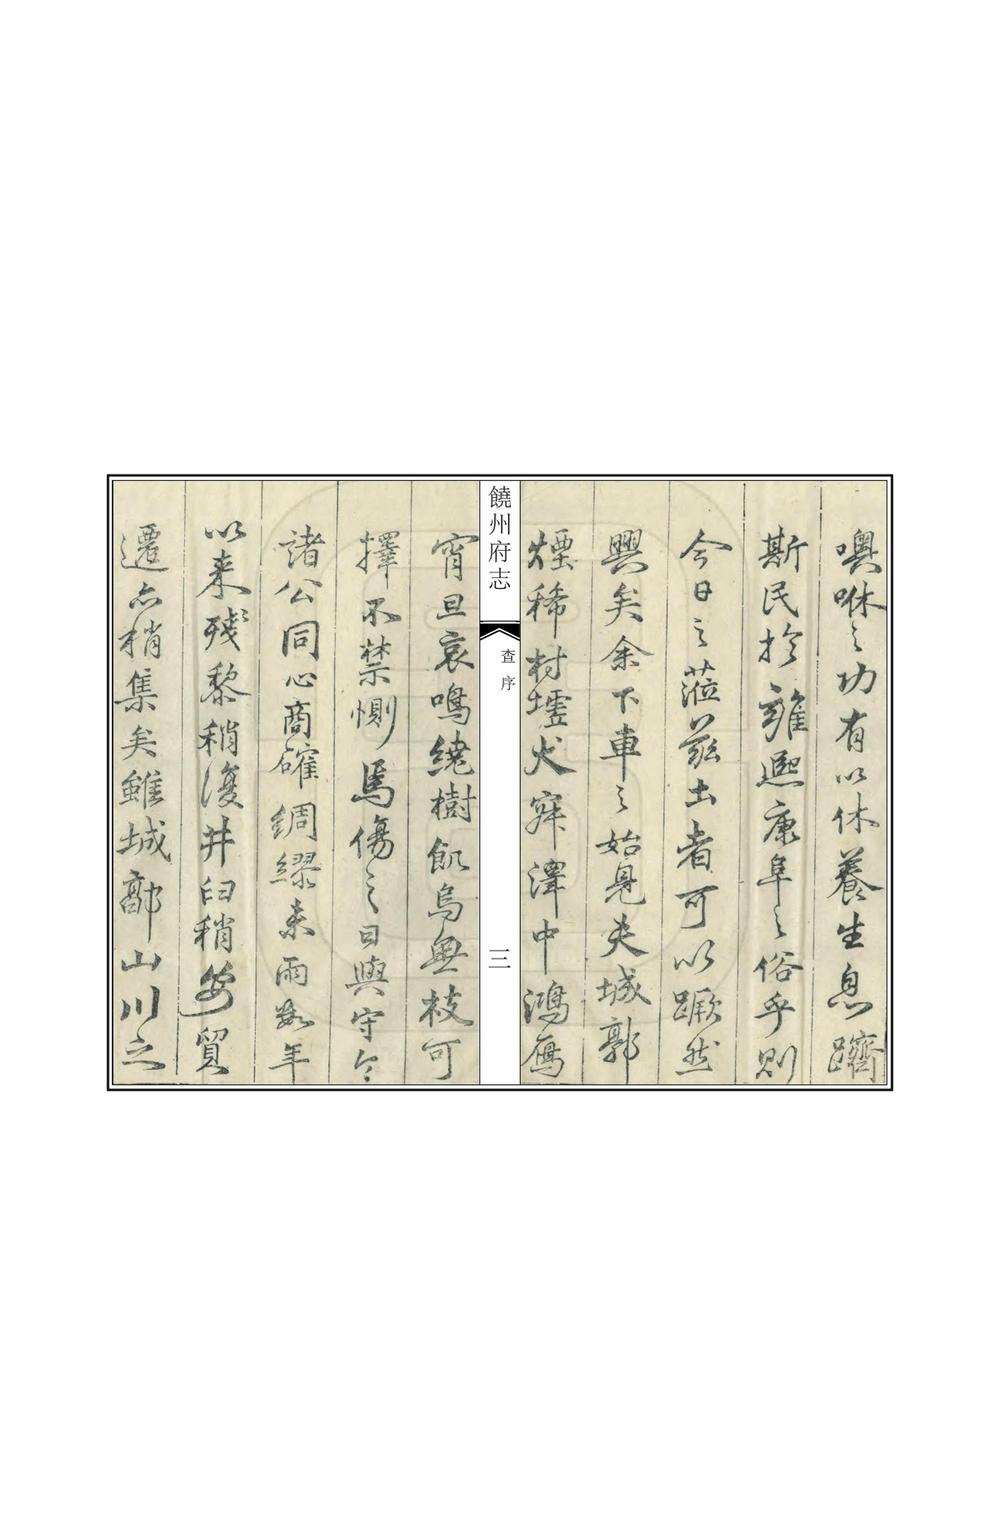 噢咻之功有以休養生息躋
斯民於雍熙康阜之俗乎則
今日之蒞茲土者可以蹶然
興矣余下車之始見夫城郭
煙稀村墟犬寂澤中鴻鴈
饒州府志
查序
三
宵旦哀鳴繞樹飢烏無枝可
擇不禁惻焉傷之日與守令
諸公同心商確綢繆未雨數年
以来殘黎稍復井臼稍安貿
遷亦稍集矣雖城鄙山川之